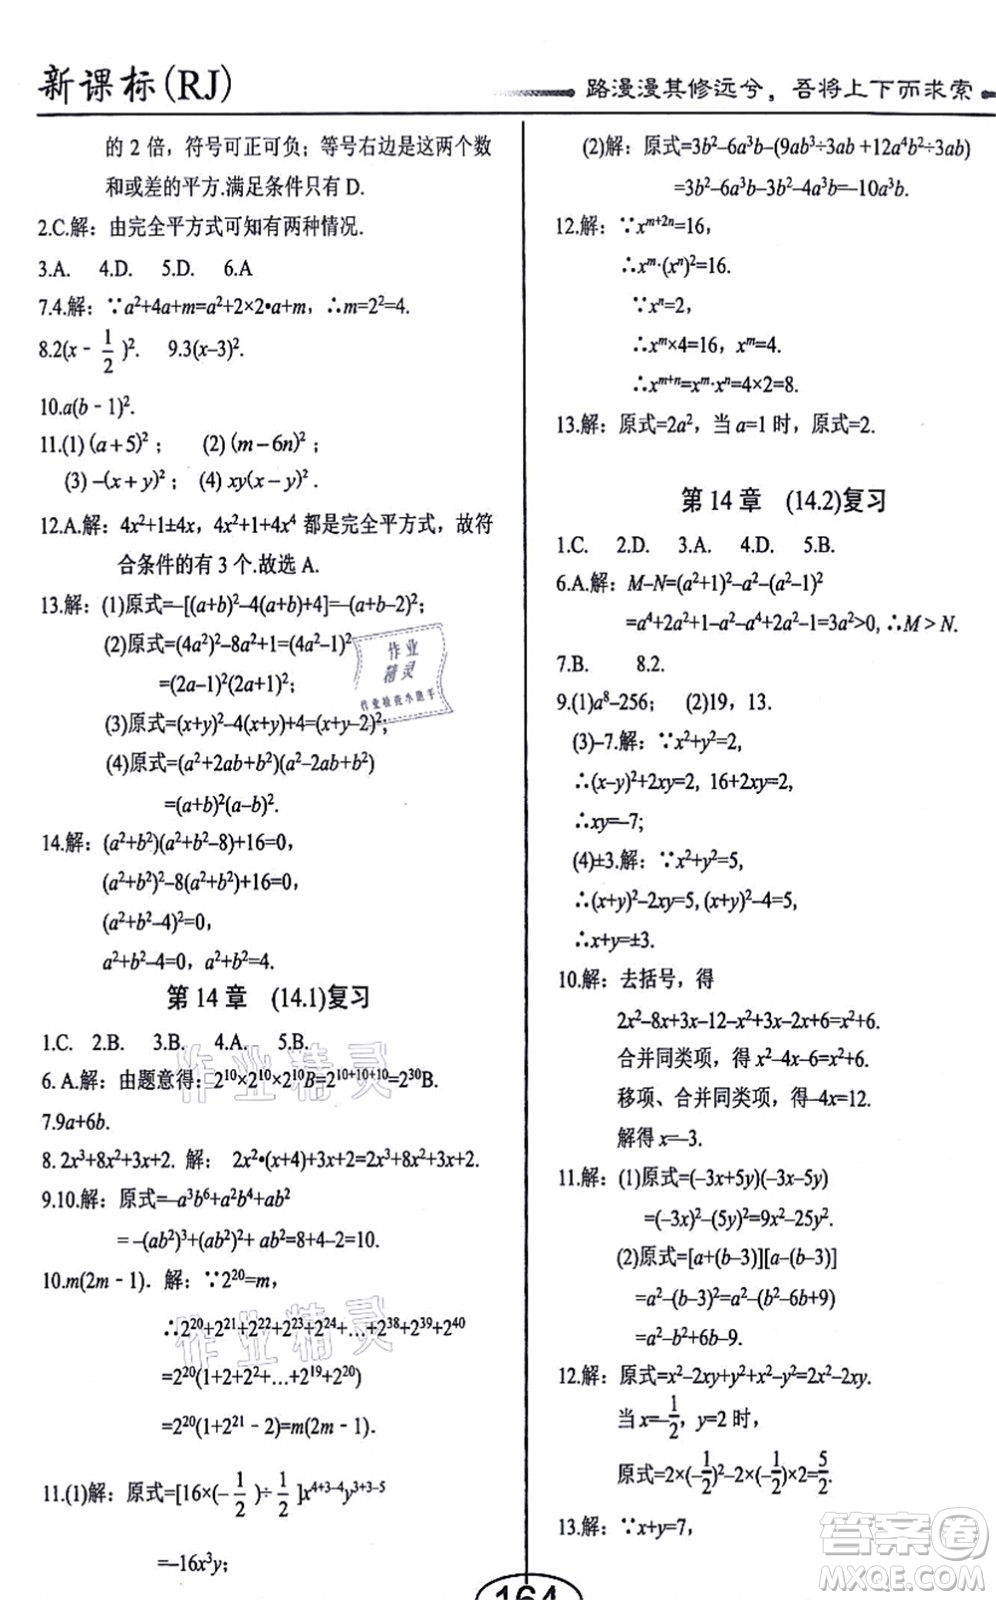 新课标(RJ)
路漫漫其修远兮，吾将上下而求索
的 2 倍，符号可正可负；等号右边是这两个数
和或差的平方.满足条件只有 D.
2.C.解：由完全平方式可知有两种情况.
3.A. 4.D. 5.D. 6.A
7.4.解：∵a²+4a+m=a²+2×2•a+m，∴m=2²=4.
8.2(x - 1/2 )². 9.3(x–3)².
10.a(b - 1)².
11.(1) (a+5)²； (2) (m–6n)²；
(3) –(x+y)²； (4) xy(x–y)².
12.A.解：4x²+1±4x，4x²+1+4x⁴ 都是完全平方式，故符
合条件的有 3 个.故选 A.
13.解：(1)原式=–[(a+b)²–4(a+b)+4]=–(a+b–2)²；
(2)原式=(4a²)²–8a²+1=(4a²–1)²
=(2a–1)²(2a+1)²；
(3)原式=(x+y)²–4(x+y)+4=(x+y–2)²；
(4)原式=(a²+2ab+b²)(a²–2ab+b²)
=(a+b)²(a–b)².
14.解：(a²+b²)(a²+b²–8)+16=0,
(a²+b²)²–8(a²+b²)+16=0,
(a²+b²–4)²=0,
a²+b²–4=0, a²+b²=4.
第 14 章 (14.1)复习
1.C. 2.B. 3.B. 4.A. 5.B.
6. A.解：由题意得：2¹⁰×2¹⁰×2¹⁰B=2¹⁰⁺¹⁰⁺¹⁰=2³⁰B.
7.9a+6b.
8. 2x³+8x²+3x+2. 解： 2x²•(x+4)+3x+2=2x³+8x²+3x+2.
9.10.解：原式=–a³b⁶+a²b⁴+ab²
= –(ab²)³+(ab²)²+ ab²=8+4–2=10.
10.m(2m - 1). 解：∵2²⁰=m,
∴2²⁰+2²¹+2²²+2²³+2²⁴+…+2³⁸+2³⁹+2⁴⁰
=2²⁰(1+2+2²+…+2¹⁹+2²⁰)
=2²⁰(1+2²¹ - 2)=m(2m - 1).
11.(1)解：原式=[16×(- 1/2 )÷ 1/2 ]x⁴⁺³⁻⁴y³⁺³⁻⁵
=–16x³y;
(2)解：原式=3b²–6a³b–(9ab³÷3ab +12a⁴b²÷3ab)
=3b²–6a³b–3b²–4a³b=–10a³b.
12.解：∵xᵐ⁺²ⁿ=16,
∴xᵐ·(xⁿ)²=16.
∵xⁿ=2,
∴xᵐ×4=16, xᵐ=4.
∴xᵐ⁺ⁿ=xᵐ·xⁿ=4×2=8.
13.解：原式=2a²，当 a=1 时，原式=2.
第 14 章 (14.2)复习
1.C. 2.D. 3.A. 4.D. 5.B.
6.A.解：M–N=(a²+1)²–a²–(a²–1)²
=a⁴+2a²+1–a²–a⁴+2a²–1=3a²>0, ∴M > N.
7.B. 8.2.
9.(1)a⁸–256； (2)19，13.
(3)–7.解：∵x²+y²=2,
∴(x–y)²+2xy=2, 16+2xy=2,
∴xy=–7;
(4)±3.解：∵x²+y²=5,
∴(x+y)²–2xy=5, (x+y)²–4=5,
∴x+y=±3.
10.解：去括号，得
2x²–8x+3x–12–x²+x–2x+6=x²+6.
合并同类项，得 x²–4x–6=x²+6.
移项、合并同类项，得–4x=12.
解得 x=–3.
11.解：(1)原式=(–3x+5y)(–3x–5y)
=(–3x)²–(5y)²=9x²–25y².
(2)原式=[a+(b–3)][a–(b–3)]
=a²–(b–3)²=a²–(b²–6b+9)
=a²–b²+6b–9.
12.解：原式=x²–2xy+y²+x²–y²=2x²–2xy.
当 x=–1/2, y=2 时，
原式=2×(–1/2)²–2×(–1/2)×2=5/2.
13.解：∵x+y=7,
164
作业
精灵
作业检查小助手
作业精灵
作业精灵
答案卷
MXQE.COM